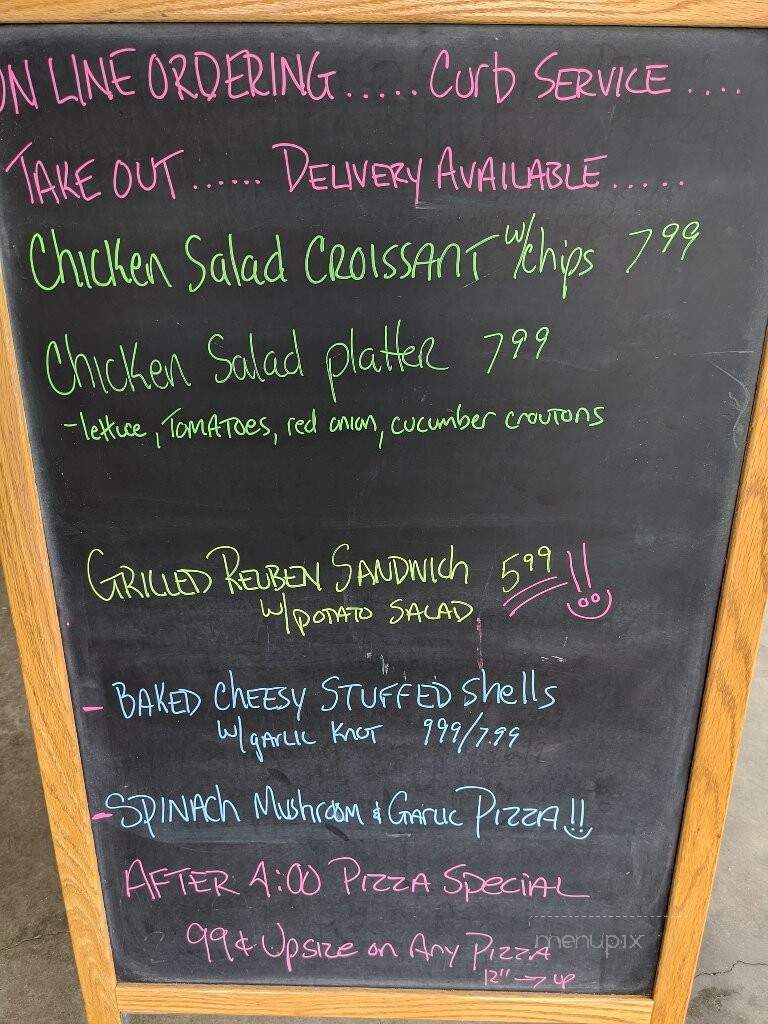 ON LINE ORDERING..... Curb SERVICE ....
TAKE OUT ...... DELIVERY AVAILABLE.....
Chicken Salad CROISSANT w/chips 799
Chicken Salad platter 799
-lettuce, TOMATOES, red onion, cucumber croutons
GRILLED REUBEN SANDWICH 599!!
w/POTATO SALAD
- BAKED CHEESY STUFFED Shells
w/GARLIC KNOT 999/7.99
- SPINACH MUSHROOM & GARLIC PIZZA!!
AFTER 4:00 PIZZA SPECIAL
99¢ Upsize on Any Pizza
12" → up
menupix